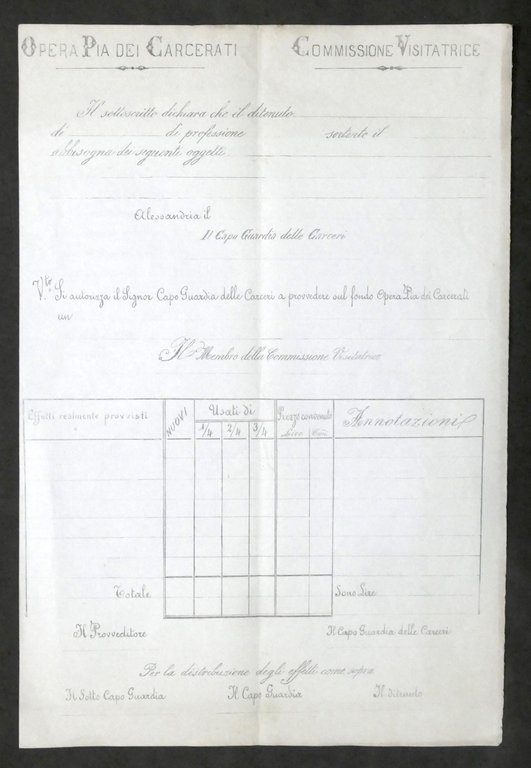 OPERA PIA DEI CARCERATI COMMISSIONE VISITATRICE
Il sottoscritto dichiara che il ditenuto
di di professione sortento il
abbisogna dei seguenti oggetti
Alessandria il
Il Capo Guardia delle Carceri
V.to Si autorizza il Signor Capo Guardia delle Carceri a provvedere sul fondo Opera Pia dei Carcerati
un
Il Membro della Commissione Visitatrice
Effetti realmente provvisti NUOVI Usati di Prezzo convenuto Annotazioni
1/4 2/4 3/4 Lire Cent.
Totale Sono Lire
Il Provveditore Il Capo Guardia delle Carceri
Per la distribuzione degli effetti come sopra
Il Sotto Capo Guardia Il Capo Guardia Il ditenuto